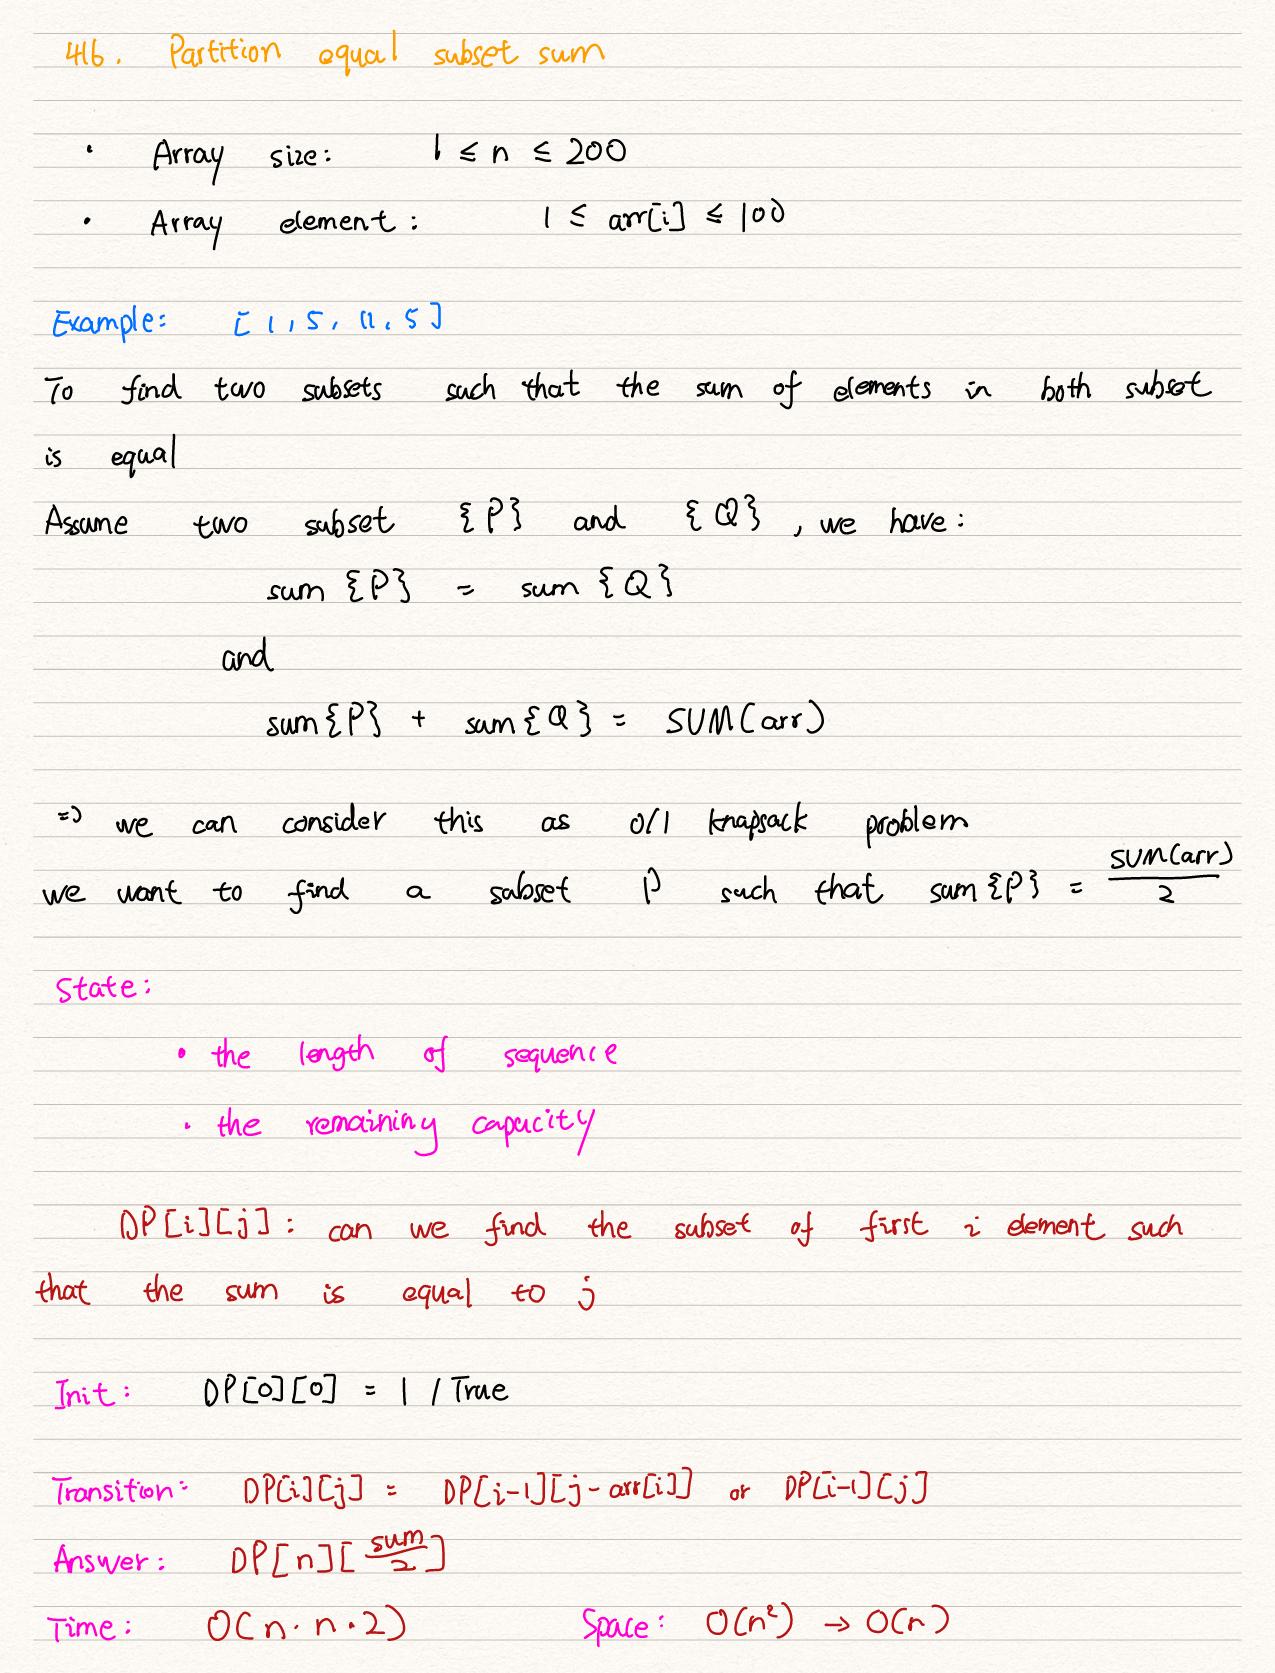 416. Partition equal subset sum
• Array size: 1 ≤ n ≤ 200
• Array element: 1 ≤ arr[i] ≤ 100
Example: [1, 5, 11, 5]
To find two subsets such that the sum of elements in both subset
is equal
Assume two subset {P} and {Q}, we have:
sum {P} = sum {Q}
and
sum{P} + sum{Q} = SUM(arr)
=> we can consider this as 0/1 knapsack problem
we want to find a subset P such that sum{P} = SUM(arr)/2
State:
• the length of sequence
• the remaining capacity
DP[i][j]: can we find the subset of first i element such
that the sum is equal to j
Init: DP[0][0] = 1 / True
Transition: DP[i][j] = DP[i-1][j-arr[i]] or DP[i-1][j]
Answer: DP[n][sum/2]
Time: O(n·n·2) Space: O(n²) → O(n)